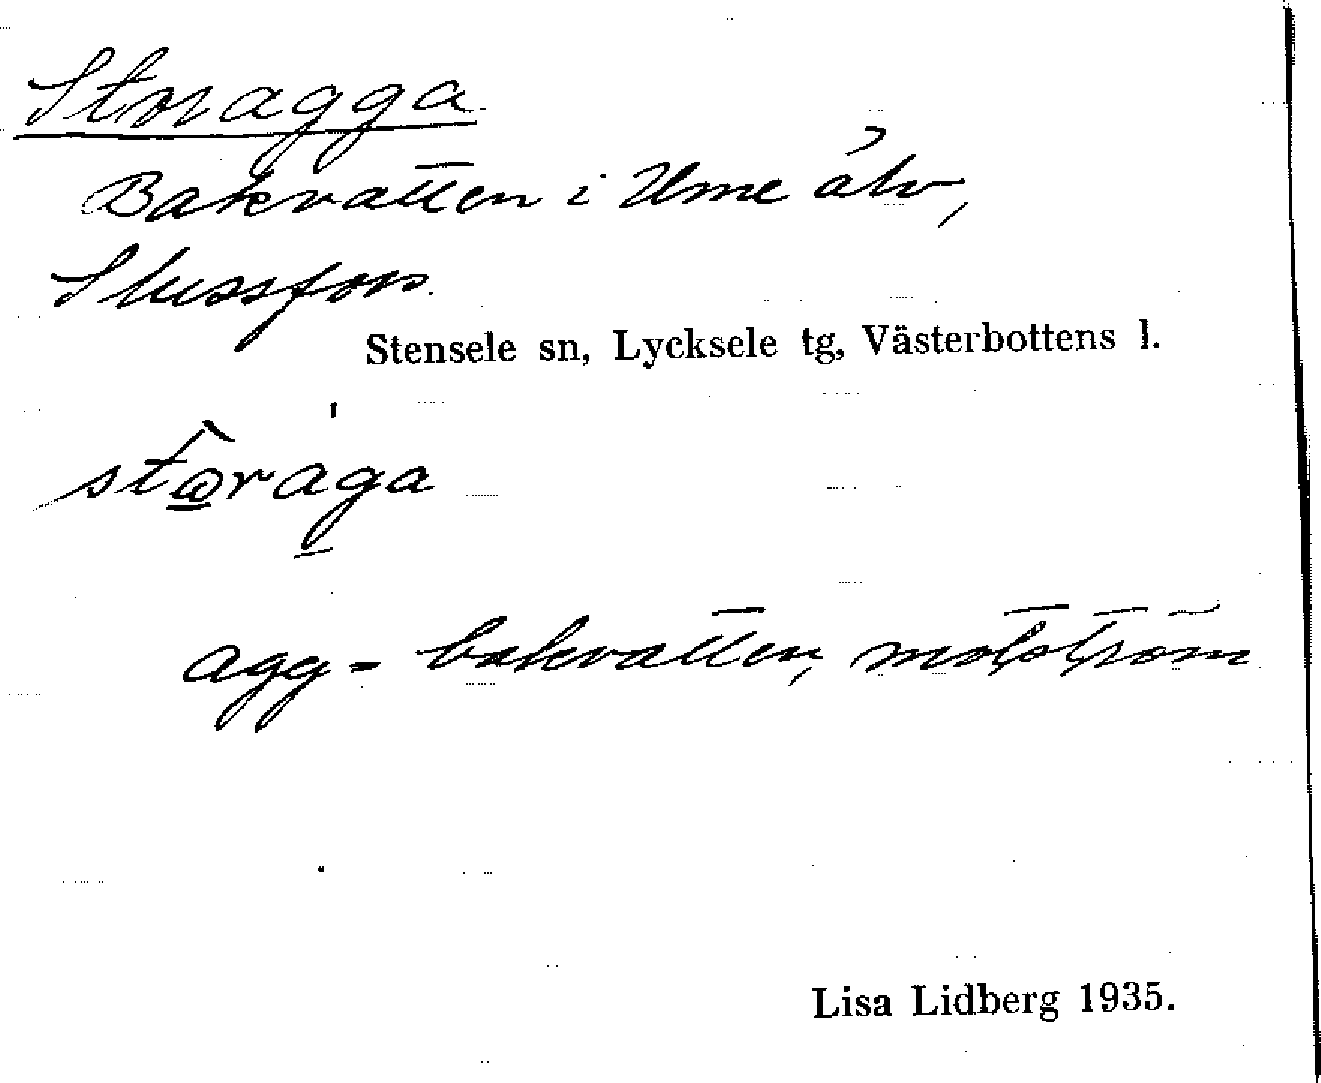 Storagga
Bakvatten i Ume älv,
Slussfors.
Stensele sn, Lycksele tg, Västerbottens l.
agg = bakvatten, motström
Lisa Lidberg 1935.